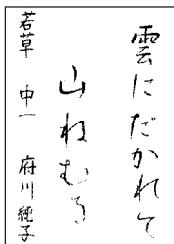 雲にだかれて
山ねむる
若草 中一 府川純子